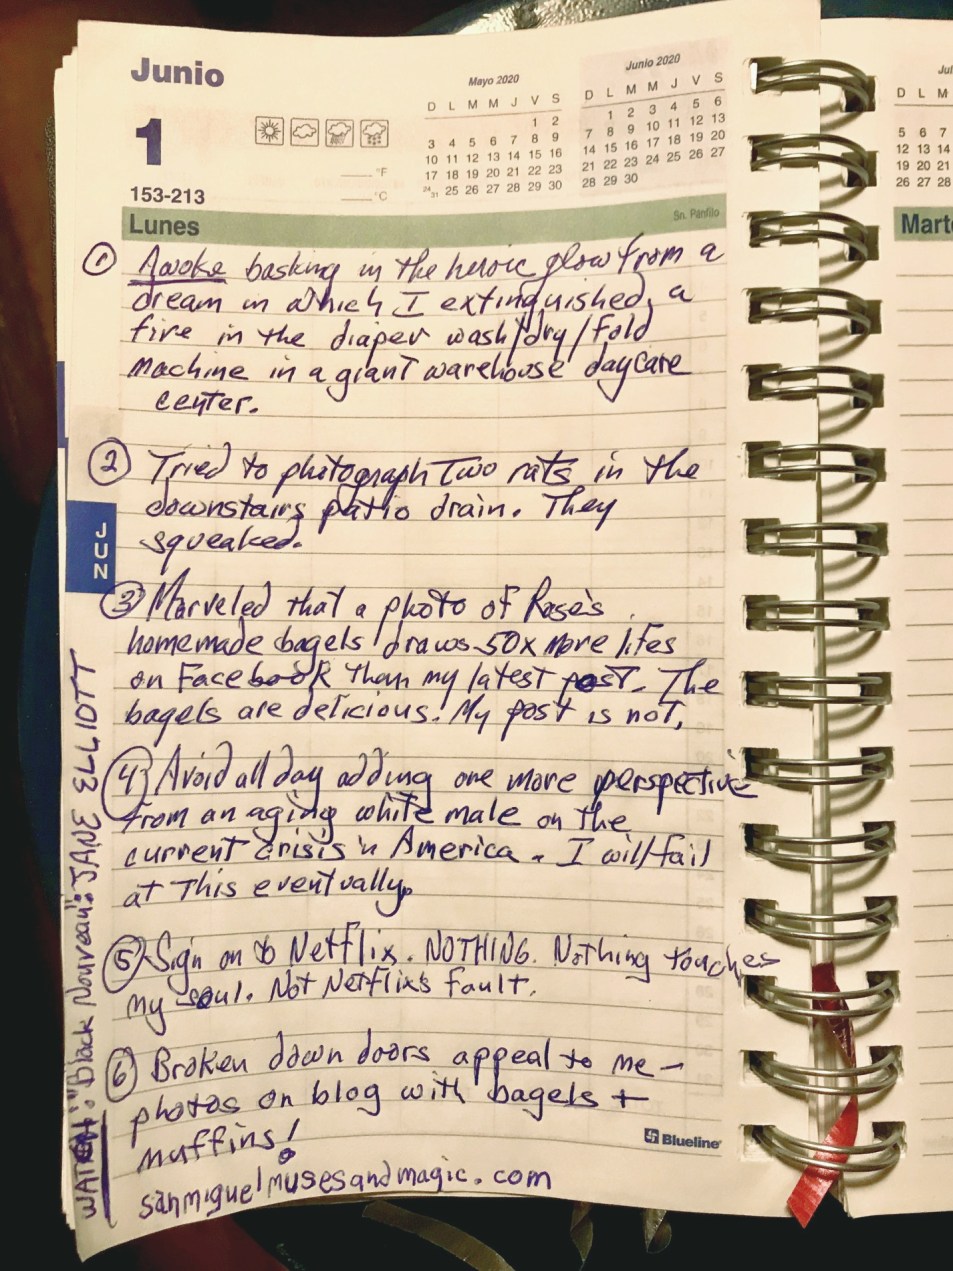 Junio
1
153-213
°F
°C
Mayo 2020
D L M M J V S
1 2
3 4 5 6 7 8 9
10 11 12 13 14 15 16
17 18 19 20 21 22 23
24/31 25 26 27 28 29 30
Junio 2020
D L M M J V S
1 2 3 4 5 6
7 8 9 10 11 12 13
14 15 16 17 18 19 20
21 22 23 24 25 26 27
28 29 30
Lunes
Sn. Panfilo
① Awoke basking in the heroic glow from a
dream in which I extinguished a
fire in the diaper wash/dry/fold
machine in a giant warehouse daycare
center.
② Tried to photograph Two rats in the
downstairs patio drain. They
squeaked.
③ Marveled that a photo of Rose's
homemade bagels draws 50x more likes
on Facebook than my latest post. The
bagels are delicious! My post is not.
④ Avoid all day adding one more perspective
from an aging white male on the
current crisis in America. I will fail
at This eventually.
⑤ Sign on to Netflix. NOTHING. Nothing touches
my soul. Not Netflix's fault.
⑥ Broken down doors appeal to me –
photos on blog with bagels +
muffins!
sanmiguelmusesandmagic.com
Blueline
JUN
WATCH: "Black Nouveau": JANE ELLIOTT
Jul
D L M
5 6 7
12 13 14
19 20 21
26 27 28
Marte